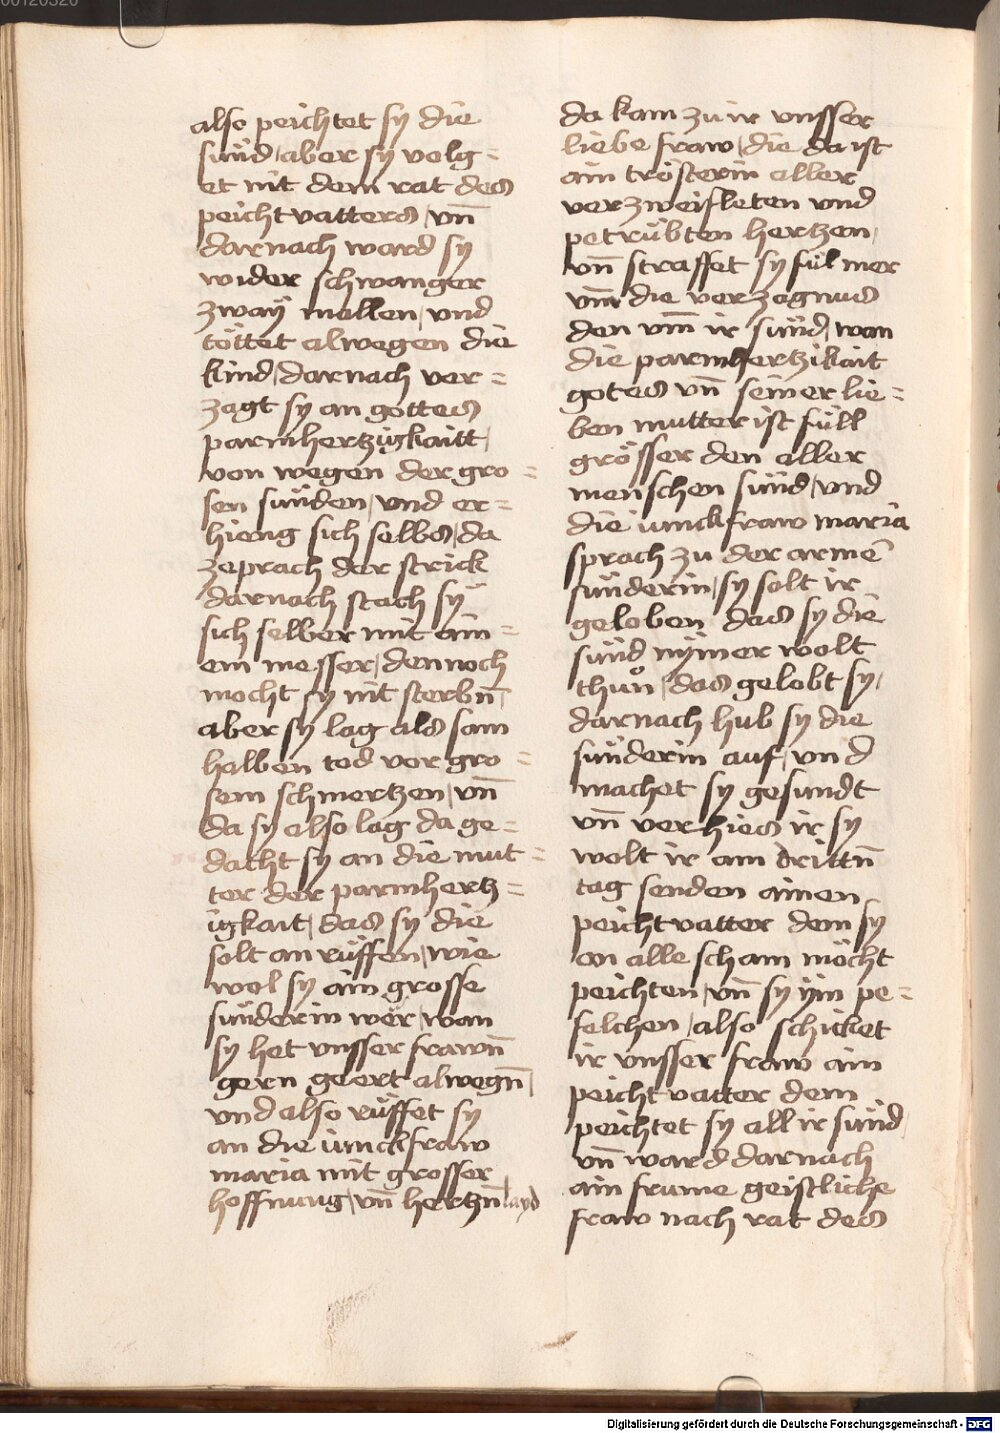 00120320
also peichtet sy die
sünd / aber sy volg=
et nit dem rat des
peicht vatters / vn̄
darnach ward sy
wider schwanger
zway mallen / vnd
töttet alwegen die
kind / darnach ver=
zagt sy an gottes
parmhertzigkaitt /
von wegen der gro=
sen sünden / vnd er=
hieng sich selbs / da
zeprach der strick
darnach stach sy
sich selber mit ain=
em messer / dennoch
mocht sy nit sterbn̄ /
aber sy lag als sam
halben tod vor gro=
sem schmertzen / vn̄
da sy also lag da ge=
dacht sy an die mut=
ter der parmhertz=
igkait / das sy die
solt an rüffen / wie
wol sy ain grosse
sünderin wer / wan
sy het vnsser frawn̄
gern geert alwegn̄ /
vnd also rüffet sy
an die iunckfraw
maria mit grosser
hoffnung / vn̄ hertzn̄ layd
da kam zu ir vnsser
liebe fraw / die da ist
ain trösterin aller
verzweifleten vnd
petrübten hertzen /
vn̄ straffet sy fül mer
vm̄ die verzagnus
den vm̄ ir sünd / wan
die parmhertzikait
gotes vn̄ seiner lie=
ben mutter ist füll
grösser den aller
menschen sünd / vnd
die iunckfraw maria
sprach zu der armē
sünderin / sy solt ir
geloben das sy die
sünd nymer wolt
thuͦn / das gelobt sy /
darnach hub sy die
sünderin auf / vnd
machet sy gesundt
vn̄ verhies ir sy
wolt ir am drittn̄
tag senden ainen
peicht vatter dem sy
an alle scham möcht
peichten / vn̄ sy ym pe=
felchen / also schicket
ir vnsser fraw ain
peicht vatter dem
peichtet sy all ir sünd /
vn̄ ward darnach
ain frume geistliche
fraw nach rat des
Digitalisierung gefördert durch die Deutsche Forschungsgemeinschaft - DFG